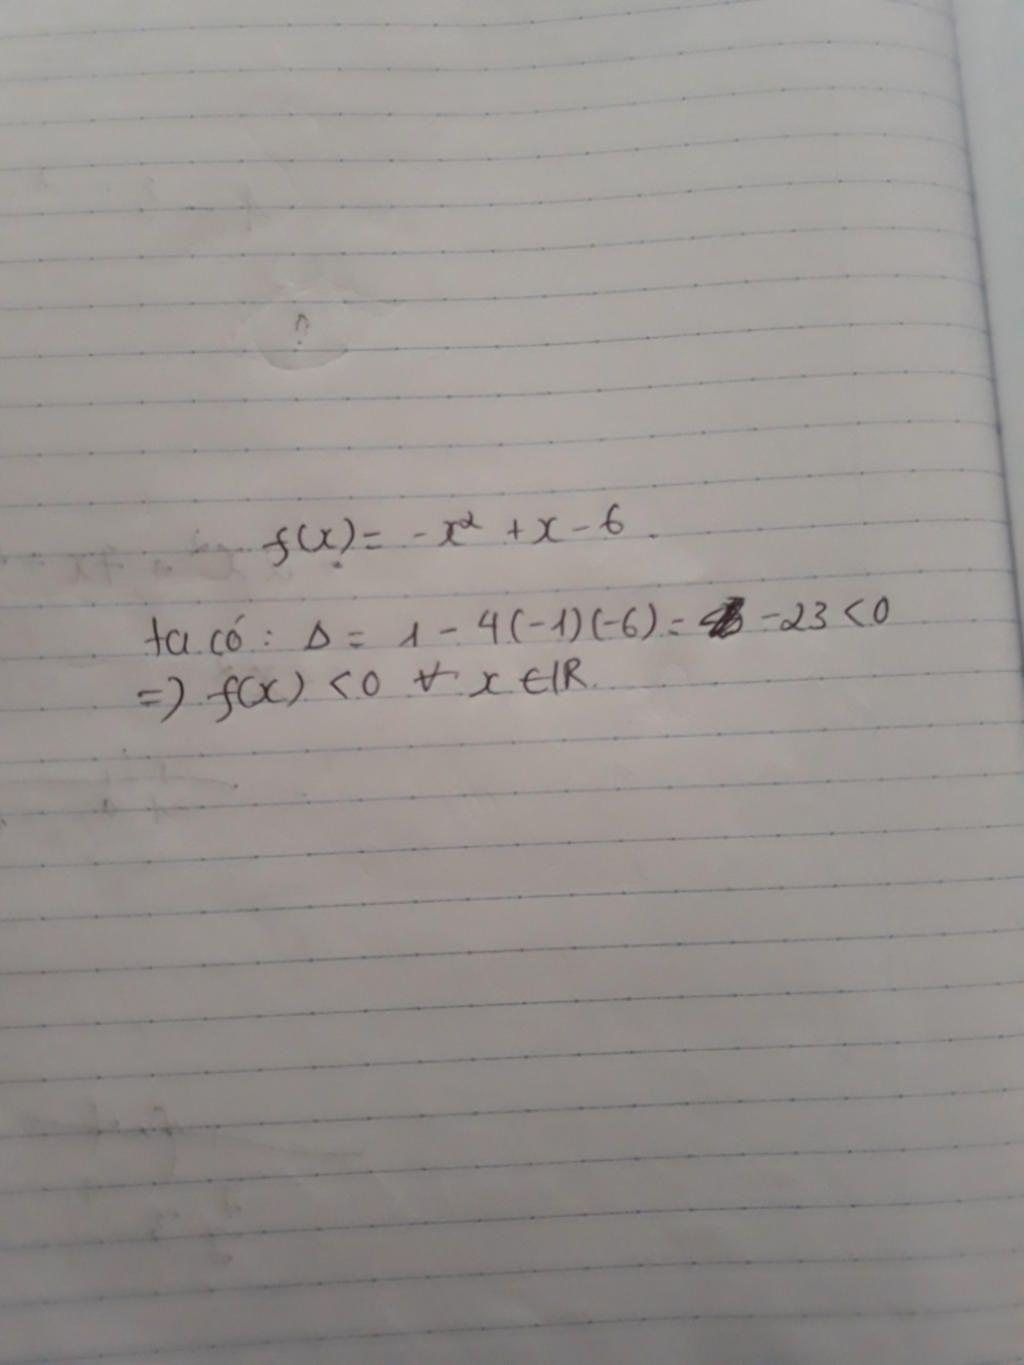 ?
f(x) = -x² + x - 6.
ta có: Δ = 1 - 4(-1)(-6) = -23 < 0
=> f(x) < 0 ∀ x ∈ ℝ.